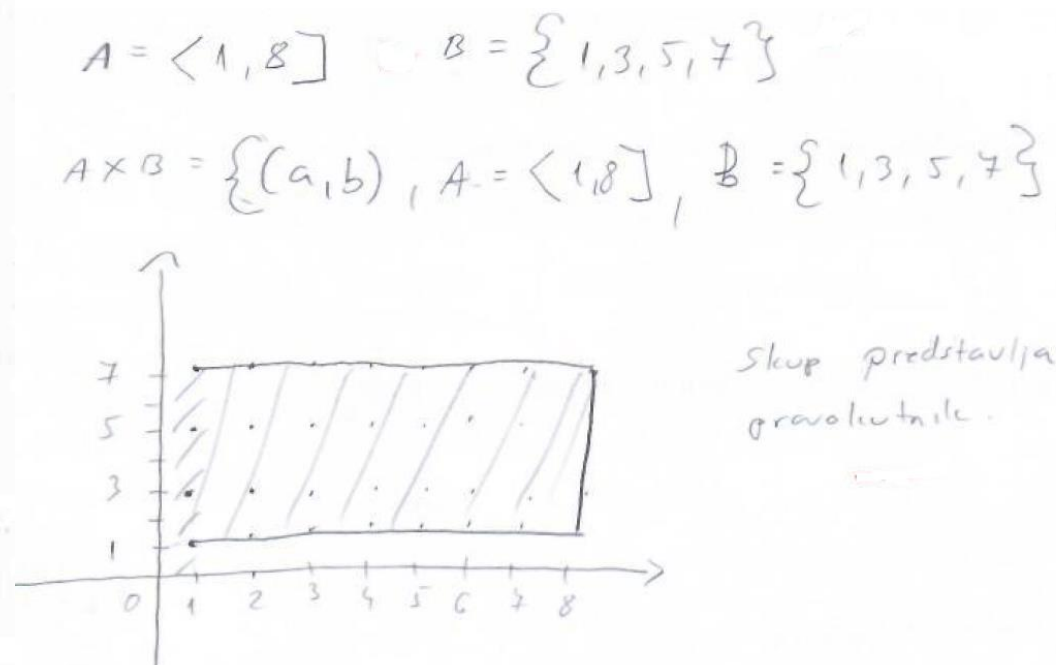 A = <1,8] B = {1,3,5,7}
A×B = {(a,b), A = <1,8], B = {1,3,5,7}
7
5
3
1
0 1 2 3 4 5 6 7 8
Skup predstavlja
pravokutnik.